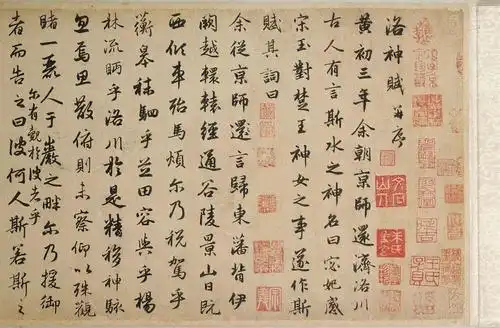 洛神賦 并序
黄初三年余朝京師還濟洛川
古人有言斯水之神名曰宓妃感
宋玉對楚王神女之事遂作斯
賦其詞曰
余從京師還言歸東藩背伊
闕越轘轅經通谷陵景山日既
西傾車殆馬煩尔乃税駕乎
蘅皋秣駟乎芝田容與乎楊
林流眄乎洛川於是精移神駭
忽焉思散俯則未察仰以殊觀
睹一麗人于巖之畔尔乃援御
尔有覿於彼者乎
者而告之曰彼何人斯若斯之